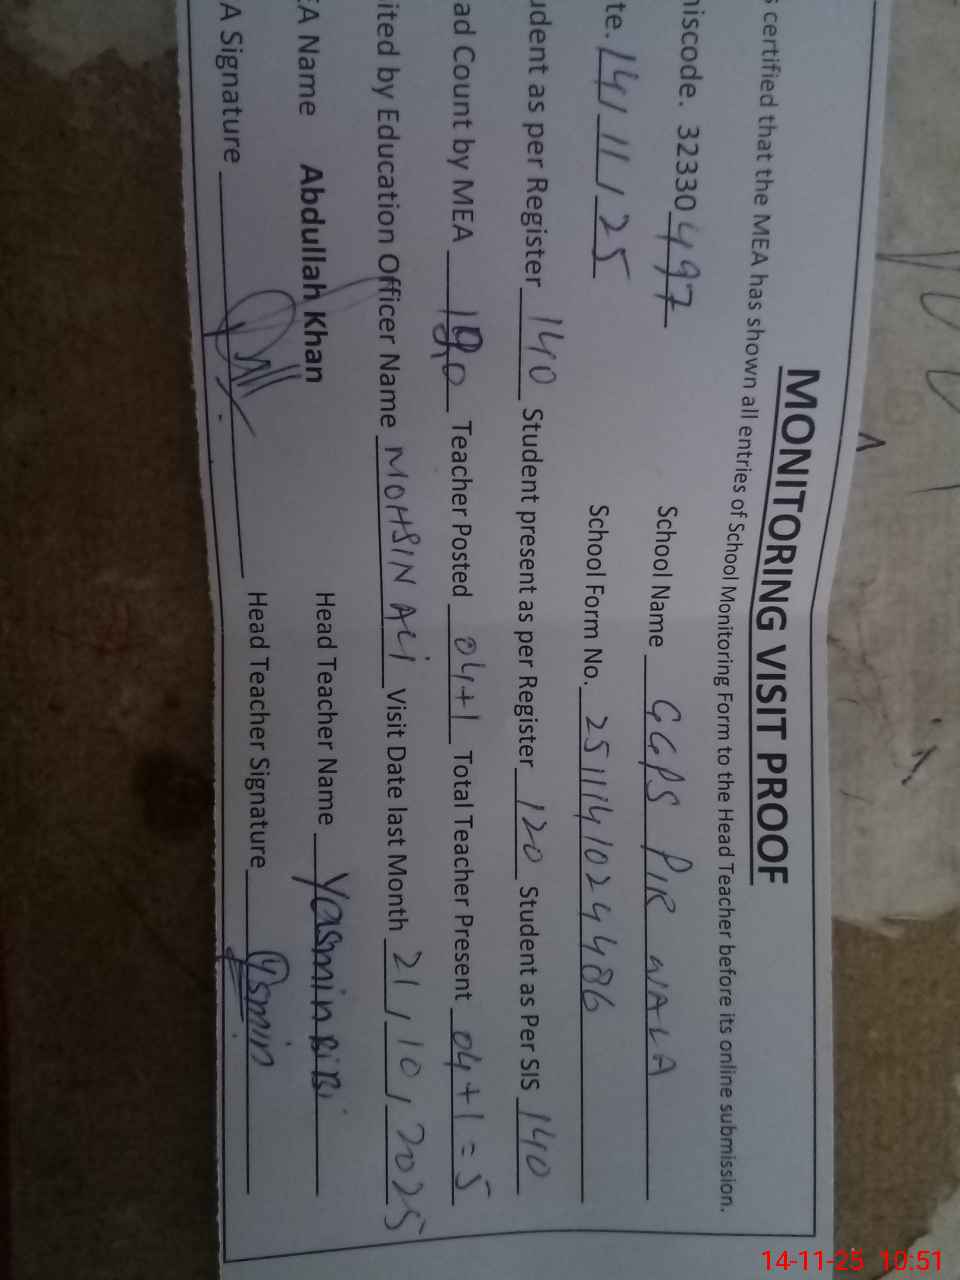 MONITORING VISIT PROOF
s certified that the MEA has shown all entries of School Monitoring Form to the Head Teacher before its online submission.
niscode. 32330497 School Name GGPS PIR WALA
te. 14/11/25 School Form No. 2511141024486
udent as per Register 140 Student present as per Register 120 Student as Per SIS 140
ad Count by MEA Teacher Posted 04+1 Total Teacher Present 04+1=5
ited by Education Officer Name MOHSIN ALI Visit Date last Month 21/10/2025
EA Name Abdullah Khan Head Teacher Name Yasmin BiBi
A Signature Head Teacher Signature Ysmin
14-11-25 10:51